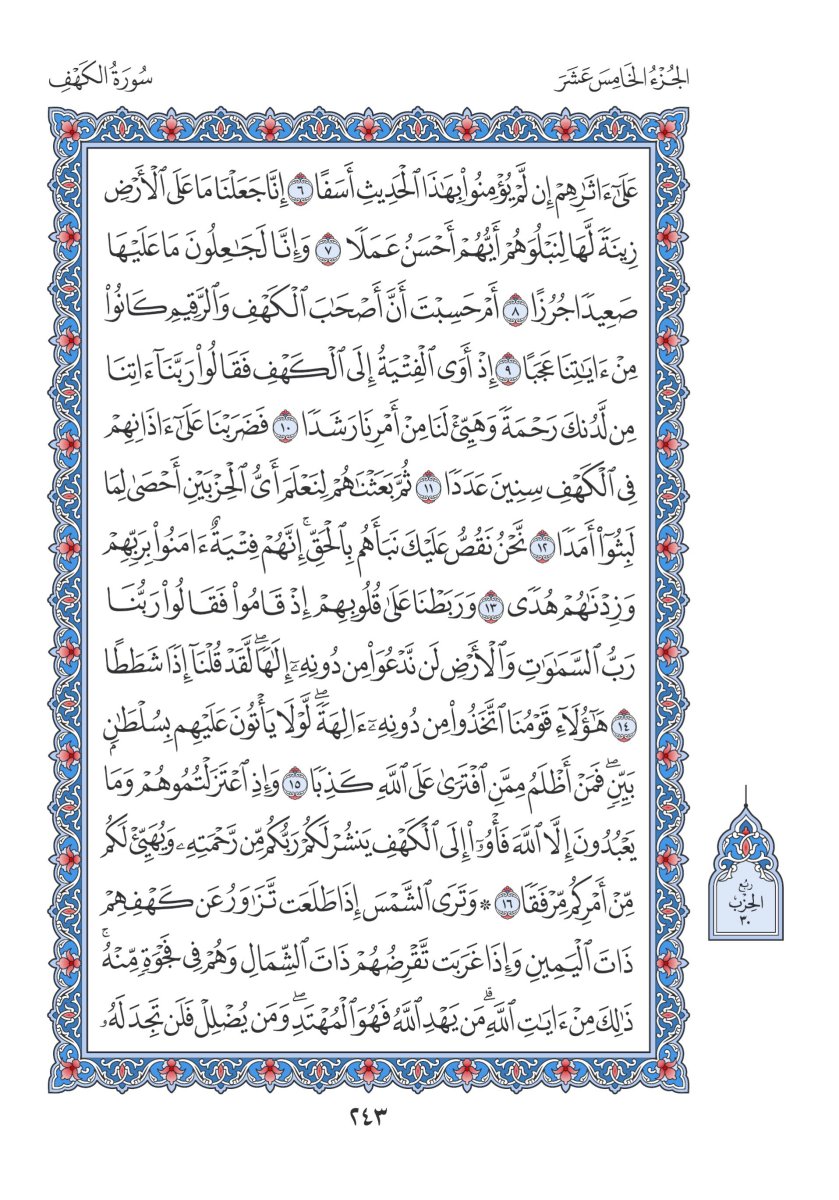 الجُزْءُ الخَامِسَ عَشَرَ
سُورَةُ الكَهْفِ
عَلَىٰٓ ءَاثَٰرِهِمۡ إِن لَّمۡ يُؤۡمِنُواْ بِهَٰذَا ٱلۡحَدِيثِ أَسَفًا ٦ إِنَّا جَعَلۡنَا مَا عَلَى ٱلۡأَرۡضِ
زِينَةٗ لَّهَا لِنَبۡلُوَهُمۡ أَيُّهُمۡ أَحۡسَنُ عَمَلٗا ٧ وَإِنَّا لَجَٰعِلُونَ مَا عَلَيۡهَا
صَعِيدٗا جُرُزًا ٨ أَمۡ حَسِبۡتَ أَنَّ أَصۡحَٰبَ ٱلۡكَهۡفِ وَٱلرَّقِيمِ كَانُواْ
مِنۡ ءَايَٰتِنَا عَجَبًا ٩ إِذۡ أَوَى ٱلۡفِتۡيَةُ إِلَى ٱلۡكَهۡفِ فَقَالُواْ رَبَّنَآ ءَاتِنَا
مِن لَّدُنكَ رَحۡمَةٗ وَهَيِّئۡ لَنَا مِنۡ أَمۡرِنَا رَشَدٗا ١٠ فَضَرَبۡنَا عَلَىٰٓ ءَاذَانِهِمۡ
فِي ٱلۡكَهۡفِ سِنِينَ عَدَدٗا ١١ ثُمَّ بَعَثۡنَٰهُمۡ لِنَعۡلَمَ أَيُّ ٱلۡحِزۡبَيۡنِ أَحۡصَىٰ لِمَا
لَبِثُوٓاْ أَمَدٗا ١٢ نَّحۡنُ نَقُصُّ عَلَيۡكَ نَبَأَهُم بِٱلۡحَقِّۚ إِنَّهُمۡ فِتۡيَةٌ ءَامَنُواْ بِرَبِّهِمۡ
وَزِدۡنَٰهُمۡ هُدٗى ١٣ وَرَبَطۡنَا عَلَىٰ قُلُوبِهِمۡ إِذۡ قَامُواْ فَقَالُواْ رَبُّنَا
رَبُّ ٱلسَّمَٰوَٰتِ وَٱلۡأَرۡضِ لَن نَّدۡعُوَاْ مِن دُونِهِۦٓ إِلَٰهٗاۖ لَّقَدۡ قُلۡنَآ إِذٗا شَطَطًا
١٤ هَٰٓؤُلَآءِ قَوۡمُنَا ٱتَّخَذُواْ مِن دُونِهِۦٓ ءَالِهَةٗۖ لَّوۡلَا يَأۡتُونَ عَلَيۡهِم بِسُلۡطَٰنِۭ
بَيِّنٖۖ فَمَنۡ أَظۡلَمُ مِمَّنِ ٱفۡتَرَىٰ عَلَى ٱللَّهِ كَذِبٗا ١٥ وَإِذِ ٱعۡتَزَلۡتُمُوهُمۡ وَمَا
يَعۡبُدُونَ إِلَّا ٱللَّهَ فَأۡوُۥٓاْ إِلَى ٱلۡكَهۡفِ يَنشُرۡ لَكُمۡ رَبُّكُم مِّن رَّحۡمَتِهِۦ وَيُهَيِّئۡ لَكُم
مِّنۡ أَمۡرِكُم مِّرۡفَقٗا ١٦ ۞ وَتَرَى ٱلشَّمۡسَ إِذَا طَلَعَت تَّزَٰوَرُ عَن كَهۡفِهِمۡ
ذَاتَ ٱلۡيَمِينِ وَإِذَا غَرَبَت تَّقۡرِضُهُمۡ ذَاتَ ٱلشِّمَالِ وَهُمۡ فِي فَجۡوَةٖ مِّنۡهُۚ
ذَٰلِكَ مِنۡ ءَايَٰتِ ٱللَّهِۗ مَن يَهۡدِ ٱللَّهُ فَهُوَ ٱلۡمُهۡتَدِۖ وَمَن يُضۡلِلۡ فَلَن تَجِدَ لَهُۥ
رُبْعُ
الحِزْبِ
٣٠
٢٤٣